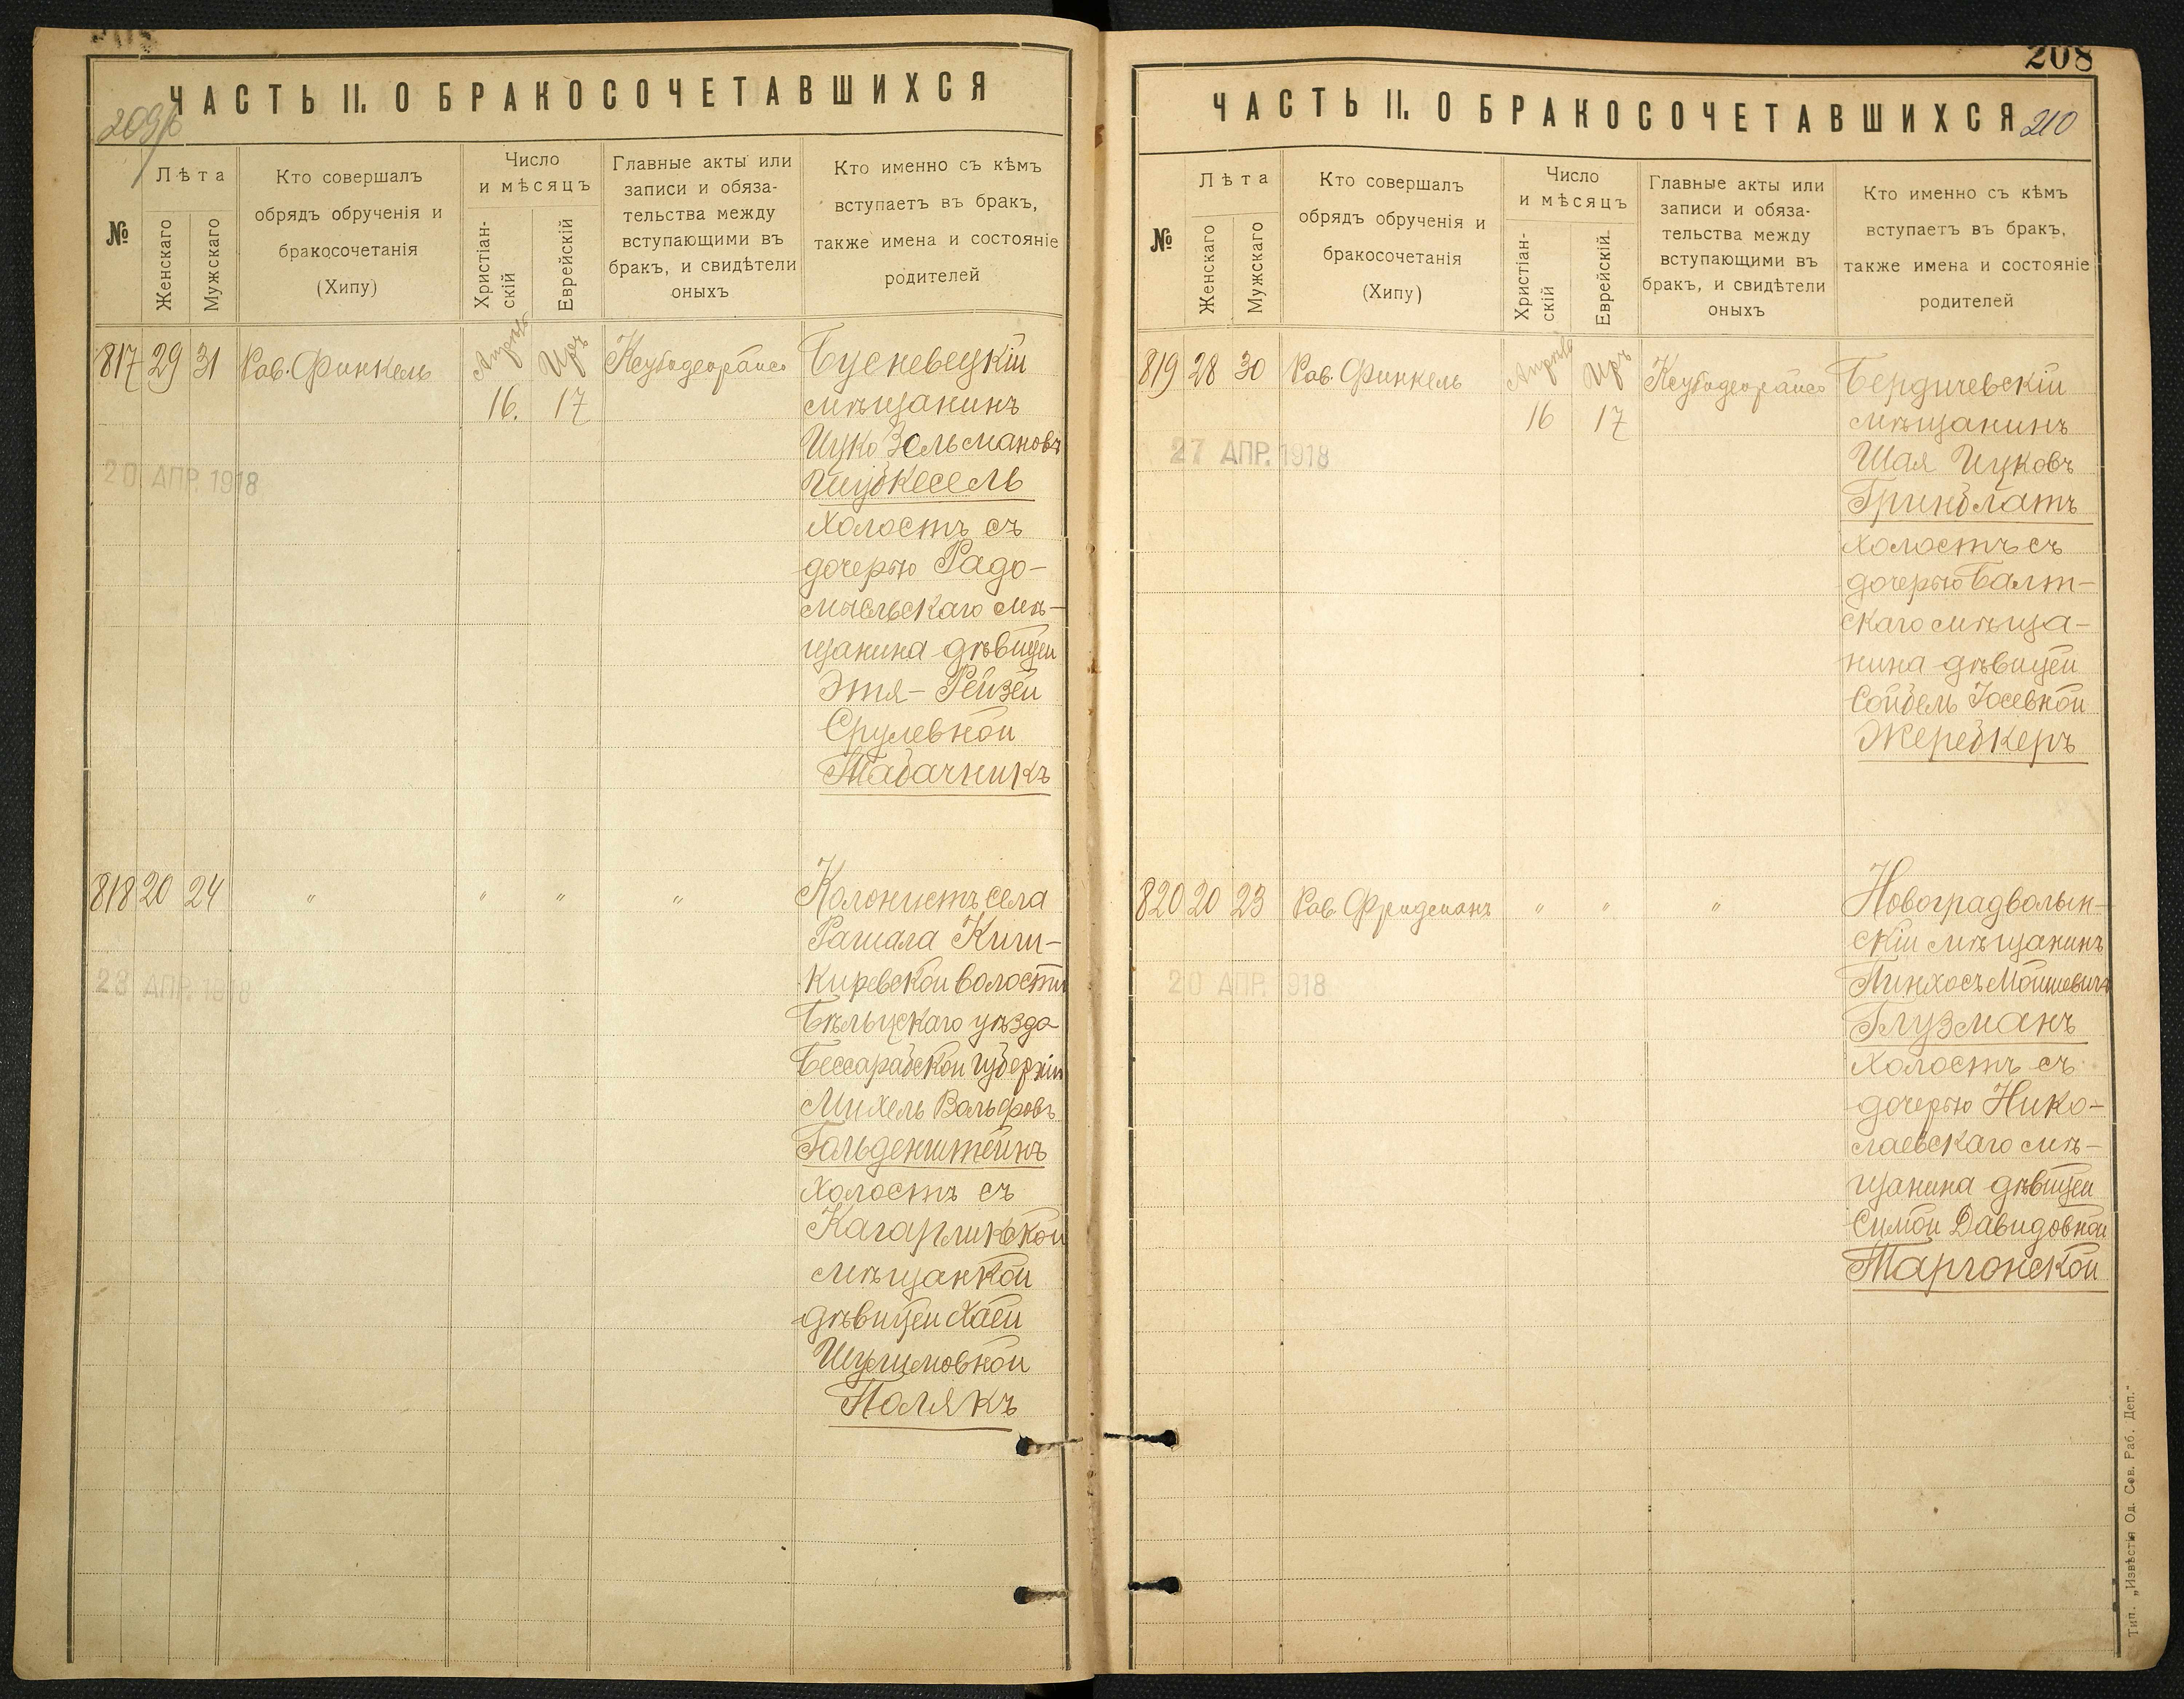 ЧАСТЬ II. О БРАКОСОЧЕТАВШИХСЯ
№
Лѣта
Женскаго
Мужскаго
Кто совершалъ
обрядъ обрученія и
бракосочетанія
(Хипу)
Число
и мѣсяцъ
Христіан-
скій
Еврейскій
Главные акты или
записи и обяза-
тельства между
вступающими въ
бракъ, и свидѣтели
оныхъ
Кто именно съ кѣмъ
вступаетъ въ бракъ,
также имена и состояніе
родителей
817 29 31 Рав. Финкель Апрѣль 16. Иръ 17
20 АПР. 1918
мѣщанинъ
Ицко Зельмановъ
холостъ съ
дочерью Радо-
мысльскаго мѣ-
щанина дѣвицей
Этя-Рейзей
Срулевной
Табачникъ
818 20 24 " " " "
23 АПР. 1918
Колонистъ села
Рашала Киш-
киревской волости
Бѣльцскаго уѣзда
Бессарабской губерніи
Михель Вольфовъ
Гольденштейнъ
холостъ съ
Кагарликской
мѣщанкой
дѣвицей Хаей
Шулимовной
Полякъ
208
ЧАСТЬ II. О БРАКОСОЧЕТАВШИХСЯ 210
№
Лѣта
Женскаго
Мужскаго
Кто совершалъ
обрядъ обрученія и
бракосочетанія
(Хипу)
Число
и мѣсяцъ
Христіан-
скій
Еврейскій.
Главные акты или
записи и обяза-
тельства между
вступающими въ
бракъ, и свидѣтели
оныхъ
Кто именно съ кѣмъ
вступаетъ въ бракъ,
также имена и состояніе
родителей
819 28 30 Рав. Финкель Апрѣль 16 Иръ 17
27 АПР. 1918
Бердичевскій
мѣщанинъ
Шая Ицковъ
Гринблатъ
холостъ съ
дочерью Балт-
скаго мѣща-
нина дѣвицей
Сойбель Іосевной
Жеребкеръ
820 20 23 Рав. Фридманъ " " "
20 АПР. 1918
Новоградволын-
скій мѣщанинъ
Пинхосъ Мойшевичъ
Глузманъ
холостъ съ
дочерью Нико-
лаевскаго мѣ-
щанина дѣвицей
Симой Давидовной
Таргонской
Тип. „Извѣстія Од. Сов. Раб. Деп."